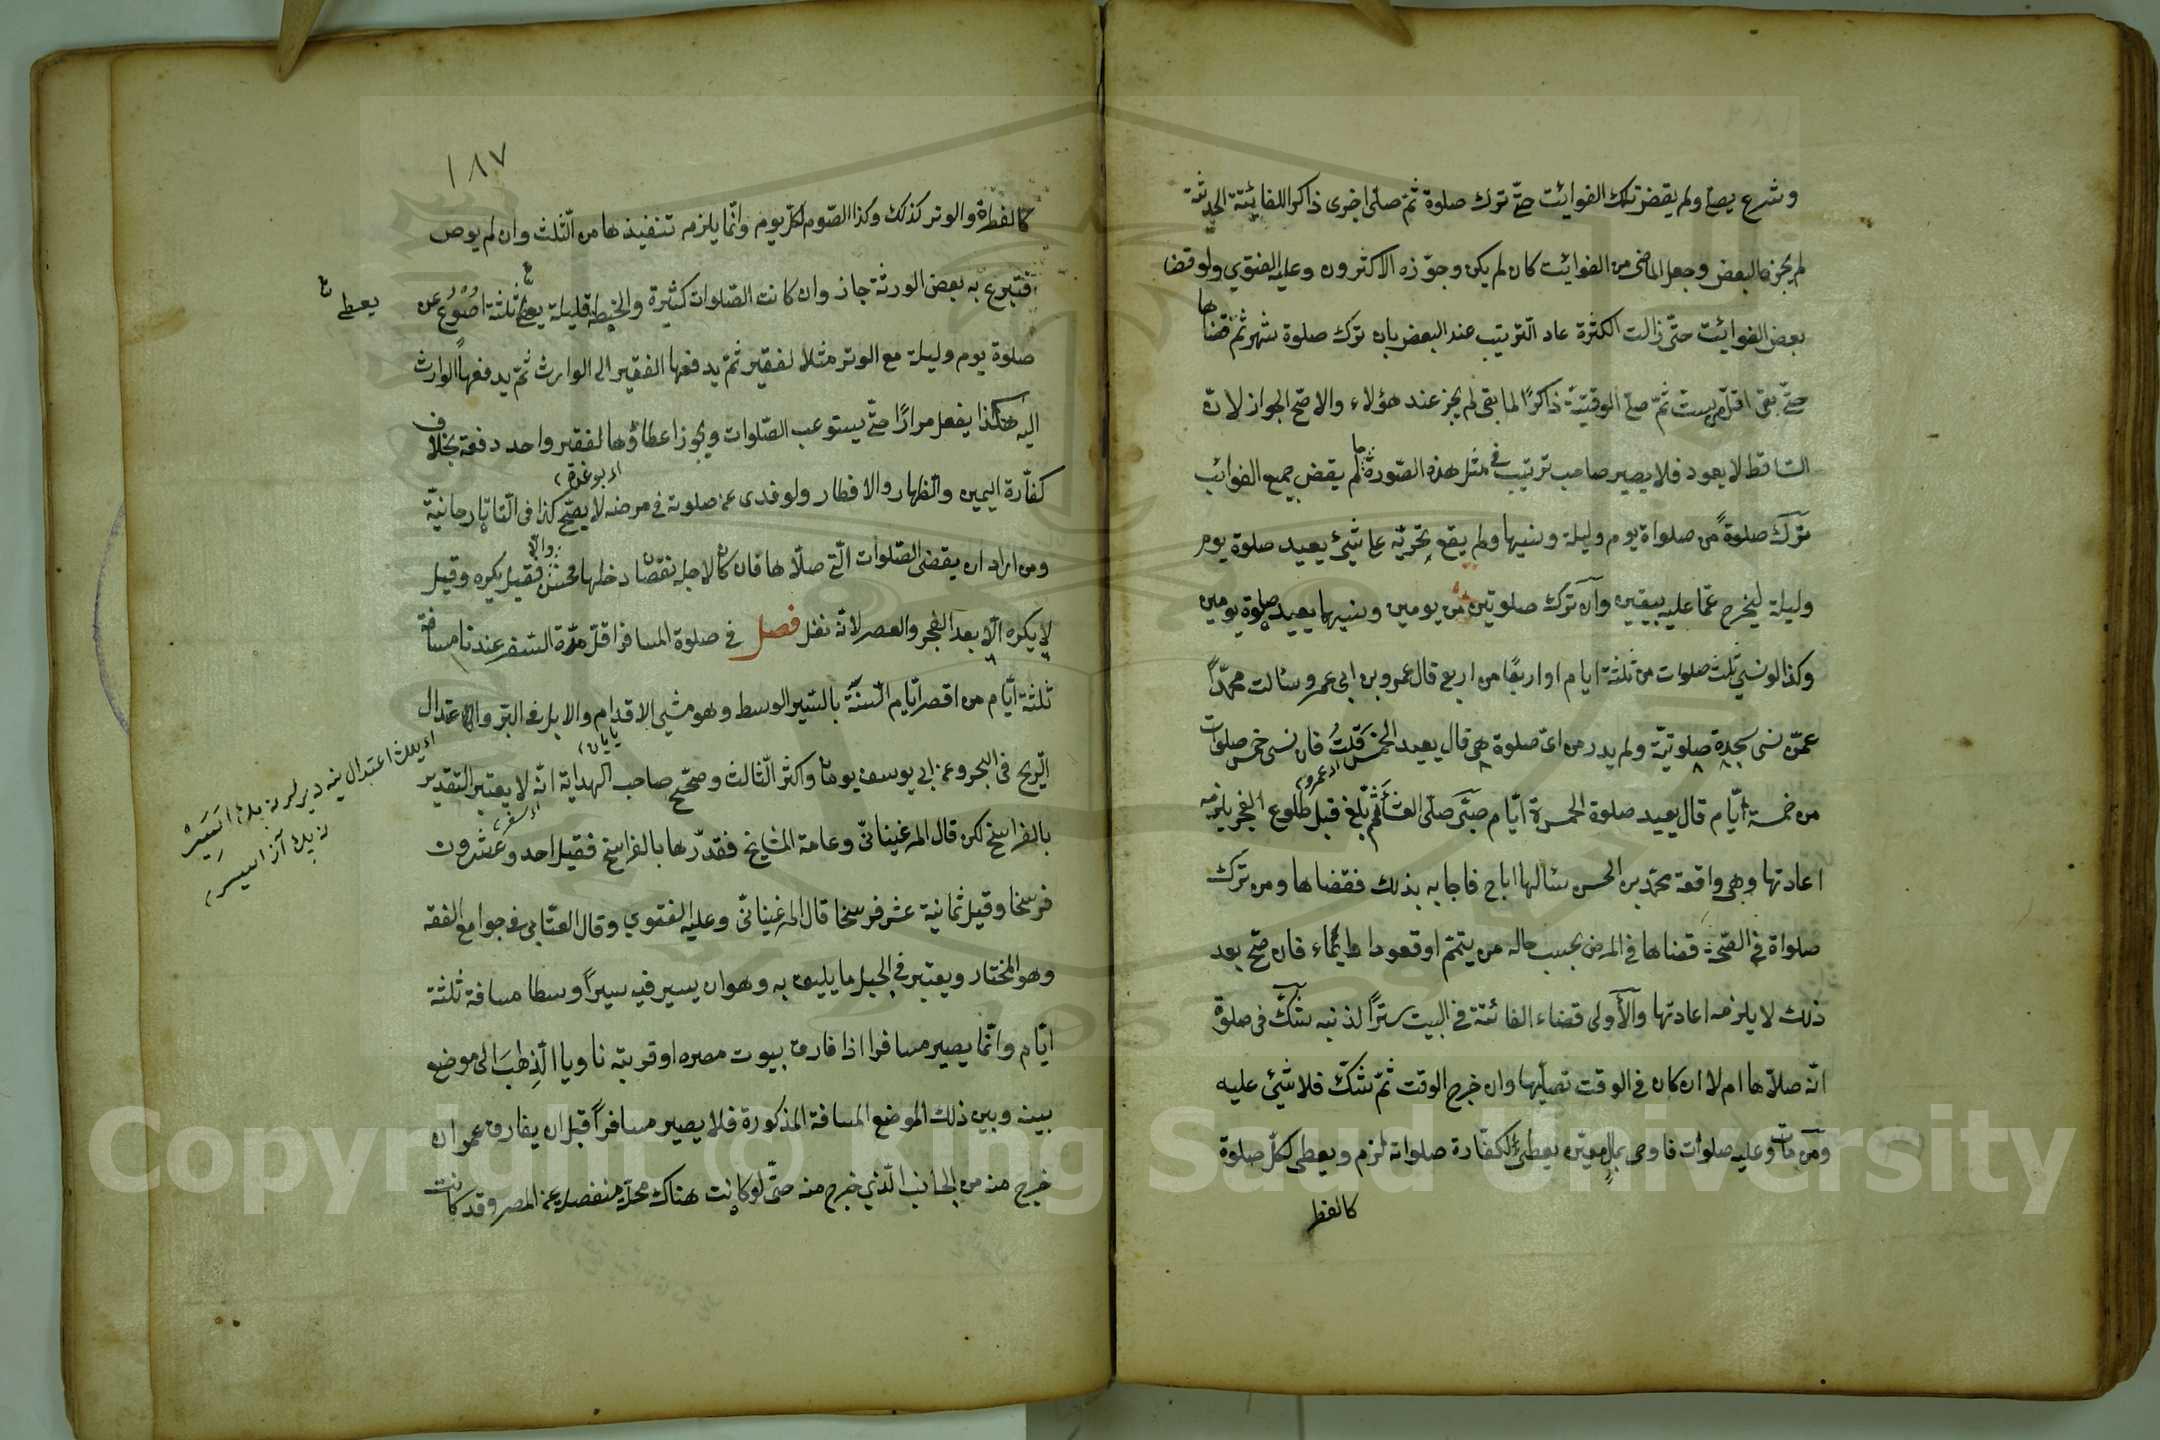 وشرع يصلي ولم يقض تلك الفوائت حتّى ترك صلوة ثمّ صلّى اخرى ذاكرا للفائتة الحديثة
لم يجز عند البعض وجعل الماضى من الفوائت كان لم يكن وجوّزه الاكثرون وعليه الفتوي ولو قضا
بعض الفوائت حتّى زالت الكثرة عاد التّرتيب عند البعض بان ترك صلوة شهر ثمّ قضاها
حتّى بقى اقلّ من ستّ ثمّ صلّى الوقتيّة ذاكرًا لما بقى لم يجز عند هؤلاء والاصحّ الجواز لانّ
السّاقط لا يعود فلا يصير صاحب ترتيب في مثل هذه الصّورة ما لم يقض جميع الفوائت
ترك صلوةً من صلواة يوم وليلة ونسيها ولم يقع تحرّيه على شيئ يعيد صلوة يوم
وليلة ليخرج عمّا عليه بيقين وان ترك صلوتين من يومين ونسيهما يعيد صلوة يومين
وكذا لو نسي ثلث صلوات من ثلثة ايام او اربعًا من اربع قال عمرو بن ابى عمرو سئالت محمّدًا
عمّن نسى سجدة صلوتيّة ولم يدر من اىّ صلوة هى قال يعيد الخمس قلتُ فان نسى خمس صلوات
من خمسة ايّام قال يعيد صلوة الخمسة ايّام صبّى صلّى العشاء ثمّ بلغ قبل طلوع الفجر يلزمه
اعادتها وهى واقعة محمّد بن الحسن سئالها ابا ح فاجابه بذلك فقضاها ومن ترك
صلواة في الصّحة قضاها في المرض بحسب حاله من يتمّم او قعود او ايماء فان صحّ بعد
ذلك لا يلزمه اعادتها والأولى قضاء الفائتة في البيت سترًا لذنبه شكّ في صلوة
انّه صلّاها ام لا ان كان في الوقت يصلّيها وان خرج الوقت ثمّ شكّ فلا شيئ عليه
ومن مات وعليه صلوات فاوصى بمال معيّن يعطى لكفّارة صلواته لزم ويعطى لكلّ صلوة
كالفطر
١٨٧
كالفطرة والوتر كذلك وكذا الصّوم لكلّ يوم وانّما يلزمه تنفيذها من الثّلث وان لم يوص
فتبرع به بعض الورثة جاز وان كانت الصّلوات كثيرة والحنطة قليلة يعطى ثلثة اصْوُع عن
يعطى
صلوة يوم وليلة مع الوتر مثلا لفقير ثمّ يدفعها الفقير الى الوارث ثمّ يدفعها الوارث
اليه هكذا يفعل مرارًا حتّى يستوعب الصّلوات ويجوز اعطاؤها لفقير واحد دفعة بخلاف
كفّارة اليمين والظهار والافطار ولو فدى عن صلوته في مرضه لا يصحّ كذا في التّاتارخانيّة
ومن اراد ان يقضى الصّلوات الّتى صلّاها فان كان لاجل نقصان دخلها فحسن والّا فقيل يكره وقيل
لا يكره الّا بعد الفجر والعصر لانّه نفل فصل في صلوة المسافر اقلّ مدّة السّفر عندنا مسافة
ثلثة ايّام من اقصر ايّام السّنة بالسّير الوسط وهو مشي الاقدام والابل في البرّ واعتدال
الرّيح في البحر وعن ابى يوسف يومان واكثر الثّالث وصحّح صاحب الهداية انّه لا يعتبر التّقدير
بالفراسخ لكن قال المرغينانىّ وعامة المشايخ فقدّرها بالفراسخ فقيل احد وعشرون
فرسخا وقيل ثمانية عشر فرسخا قال المرغينانىّ وعليه الفتوي وقال العتّابى في جوامع الفقه
وهو المختار ويعتبر في الجبل ما يليق به وهو ان يسير فيه سيرًا وسطا مسافة ثلثة
ايّام وانّما يصير مسافرا اذا فارق بيوت مصره او قريته ناويا الذّهاب الى موضع
بينه وبين ذلك الموضع المسافة المذكورة فلا يصير مسافرًا قبل ان يفارق عمران
خرج منه من الجانب الّذى خرج منه حتّى لو كانت هناك محلّة منفصلة عن المصر وقد كانت
Copyright © King Saud University